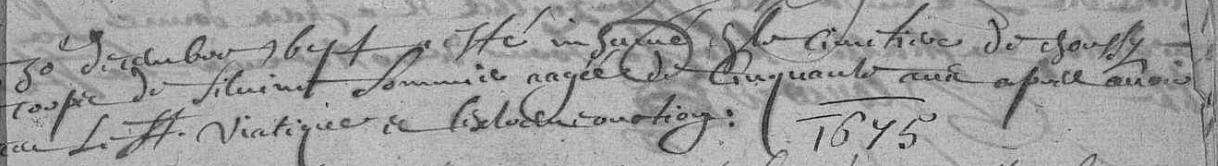 30 decembre 1674 a esté inhumé ds le cimetiere de choussy
corps de Silvine Sommier aagée de Cinquante ans apres avoir
receu le St. Viatique et l'extreme onction :
1675